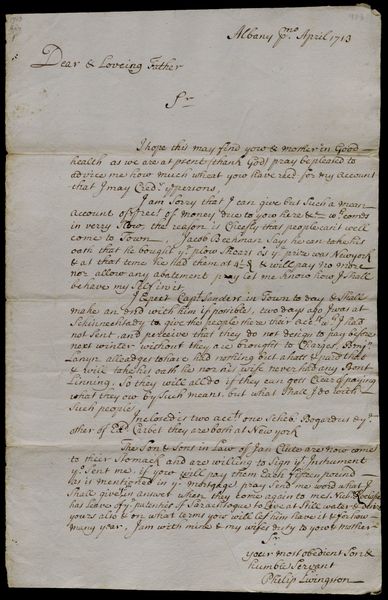 Albany pmo. April 1713
Dear & Loveing Father
Sr
I hope this may find yow & mother in Good
health as we are at present (thank God) pray be pleased to
advice me how much wheat yow have recd for my account
that I may Credt. ye persons,
I am Sorry that I can give but Such a mean
account of ye of money due to yow here & comes
in verry Slow, the reason is Cheefly that people can't well
come to Town, Jacob Beekman Says he can take his
oath that he bought ye plow Shears is ye prize was New york
& at that time he had them at & will pay no more
nor allow any abatement pray let me know how I shall
behave my Self in it
I Expect Capt Sanders in Town to day & Shall
make an End with him if possible, two days ago I was at
Schinneehtady to give the people there their accts. wch. I had
not Sent, and perceive that they do not design to pay before
next winter without they are brought to Charges,
alleadges to have had nothing but a hatt & paid that
& will take his oath he nor his wife never had any
Linning, So they will all do if they can gett Clear of paying
what they ow by Such means, but what shall I do with
Such people
Inclosed is two accts. one Bogardus & ye
other of Corbet they are both at New york
The Son & Sons in Law of Jan are now come
to their Stomack and are willing to Sign ye Instrument
ye Sent me, if your will pay them Each fifty pound
as is mentioned in ye mortgage pray Send me word what I
Shall give in answer when they come again to me,
has leave of ye patentees of Sarachtogue to Live at Still water &
yours also & on what terms your will let him have it & for how
many year, I am with mine & my wifes duty to yow & mother
Sr
your most obedient Son &
humble Servant
Philip Livingston